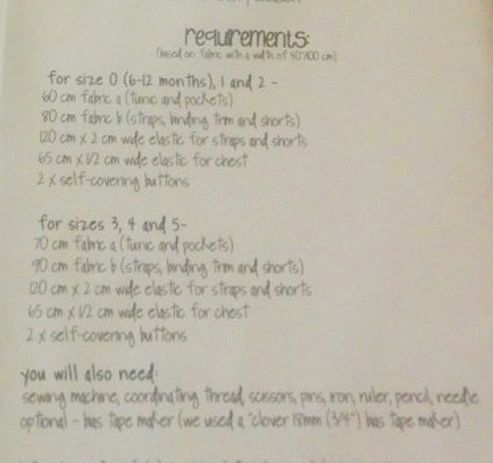 requirements:
(based on fabric with a width of 40"/100 cm)
for size 0 (6-12 months), 1 and 2 -
60 cm fabric a (tunic and pockets)
80 cm fabric b (straps, binding trim and shorts)
120 cm x 2 cm wide elastic for straps and shorts
65 cm x 1/2 cm wide elastic for chest
2 x self-covering buttons
for sizes 3, 4 and 5-
70 cm fabric a (tunic and pockets)
90 cm fabric b (straps, binding trim and shorts)
120 cm x 2 cm wide elastic for straps and shorts
65 cm x 1/2 cm wide elastic for chest
2 x self-covering buttons
you will also need:
sewing machine, coordinating thread, scissors, pins, iron, ruler, pencil, needle
optional - bias tape maker (we used a "clover 18mm (3/4") bias tape maker)